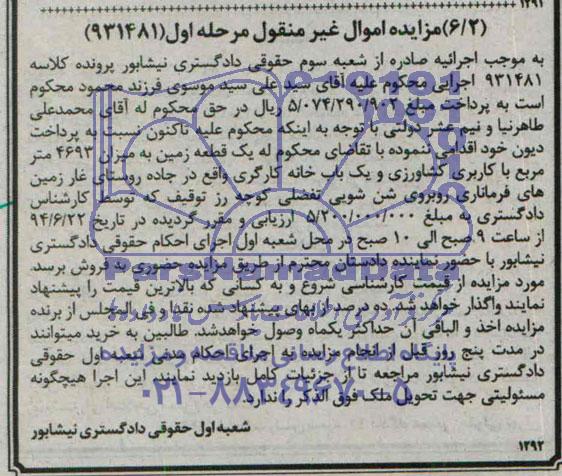 ۱۲۹۱
(۶/۲)مزایده اموال غیر منقول مرحله اول(۹۳۱۴۸۱)
به موجب اجرائیه صادره از شعبه سوم حقوقی دادگستری نیشابور پرونده کلاسه
۹۳۱۴۸۱ اجرایی محکوم علیه آقای سید علی سید موسوی فرزند محمود محکوم
است به پرداخت مبلغ ۵/۰۷۴/۲۹۰/۹۰۲ ریال در حق محکوم له آقای محمدعلی
طاهرنیا و نیم عشر دولتی با توجه به اینکه محکوم علیه تاکنون نسبت به پرداخت
دیون خود اقدامی ننموده با تقاضای محکوم له یک قطعه زمین به میزان ۴۶۹۳ متر
مربع با کاربری کشاورزی و یک باب خانه کارگری واقع در جاده روستای غار زمین
های فرمانداری روبروی شن شویی تفضلی کوچه رز توقیف که توسط کارشناس
دادگستری به مبلغ ۵/۲۰۰/۰۰۰/۰۰۰ ارزیابی و مقرر گردیده در تاریخ ۹۴/۶/۲۲
از ساعت ۹ صبح الی ۱۰ صبح در محل شعبه اول اجرای احکام حقوقی دادگستری
نیشابور با حضور نماینده دادستان محترم از طریق مزایده حضوری به فروش برسد.
مورد مزایده از قیمت کارشناسی شروع و به کسانی که بالاترین قیمت را پیشنهاد
نمایند واگذار خواهد شد. ده درصد از بهای پیشنهاد شده نقدا و فی المجلس از برنده
مزایده اخذ و الباقی آن حداکثر یکماه وصول خواهدشد. طالبین به خرید میتوانند
در مدت پنج روز قبل از انجام مزایده به اجرای احکام مدنی شعبه اول حقوقی
دادگستری نیشابور مراجعه تا از جزئیات کامل بازدید نمایند. این اجرا هیچگونه
مسئولیتی جهت تحویل ملک فوق الذکر را ندارد.
شعبه اول حقوقی دادگستری نیشابور
۱۲۹۲
ParsNamadData
۰۲۱-۸۸۳۴۹۶۷۰-۵